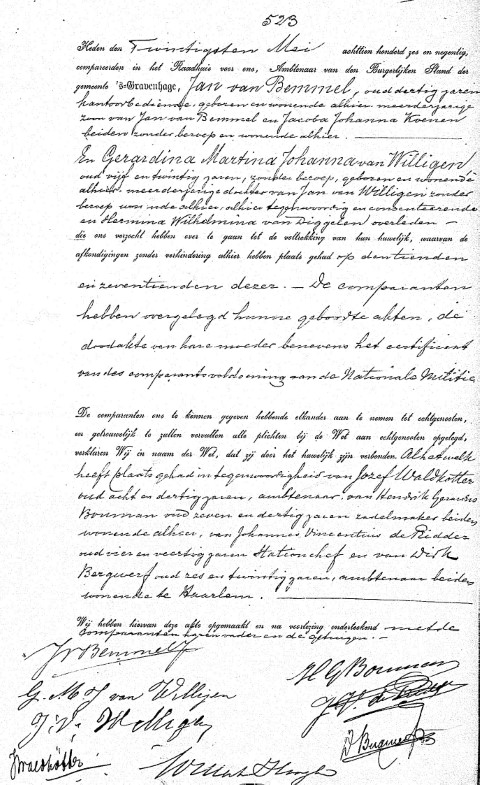 523
Heden den Twintigsten Mei achttien honderd zes en negentig,
compareerden in het Raadhuis voor ons, Ambtenaar van den Burgerlijken Stand der
gemeente 's-Gravenhage, Jan van Bemmel, oud dertig jaren
kantoorbediende, geboren en wonende alhier meerderjarige
zoon van Jan van Bemmel en Jacoba Johanna Koenen
beiden zonder beroep en wonende alhier.
En Gerardina Martina Johanna van Willigen
oud vijf en twintig jaren, zonder beroep, geboren en wonende
alhier meerderjarige dochter van Jan van Willigen zonder
beroep wonende alhier, alhier tegenwoordig en consenteerende
en Hermina Wilhelmina van Diggelen overleden —
die ons verzocht hebben over te gaan tot de voltrekking van hun huwelijk, waarvan de
afkondigingen zonder verhindering alhier hebben plaats gehad op den tienden
en zeventienden dezer. — De comparanten
hebben overgelegd hunne geboorte akten, de
doodakte van hare moeder benevens het certificaat
van des comparants voldoening aan de Nationale Militie
De comparanten ons te kennen gegeven hebbende elkander aan te nemen tot echtgenooten,
en getrouwelijk te zullen vervullen alle plichten bij de Wet aan echtgenooten opgelegd,
verklaren Wij in naam der Wet, dat zij door het huwelijk zijn verbonden. Alhetwelk
heeft plaats gehad in tegenwoordigheid van Jozef Waldkötter
oud acht en dertig jaren, ambtenaar, van Hendrik Gerardus
Bouman oud zeven en dertig jaren zadelmaker beiden
wonende alhier, van Johannes Vincentius de Ridder
oud vier en veertig jaren Stationchef en van Dirk
Bergwerf oud zes en twintig jaren, ambtenaar beiden
wonende te Haarlem.
Wij hebben hiervan deze akte opgemaakt en na voorlezing onderteekend met de
comparanten haren vader en de getuigen. —
J v Bemmel
H G Bouman
G. M. J van Willigen
J. V. de Ridder
J. v. Willigen
D Bergwerf
JWaldkötter